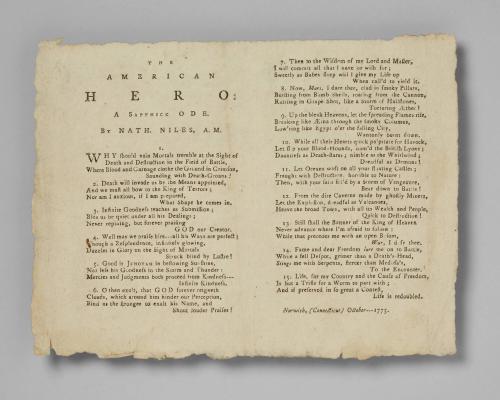 THE
AMERICAN
HERO:
A SAPPHICK ODE.
BY NATH. NILES, A.M.
1.
WHY should vain Mortals tremble at the Sight of
Death and Destruction in the Field of Battle,
Where Blood and Carnage clothe the Ground in Crimson,
Sounding with Death-Groans?
2. Death will invade us by the Means appointed,
And we must all bow to the King of Terrors;
Nor am I anxious, if I am prepared,
What Shape he comes in.
3. Infinite Goodness teaches us Submission;
Bids us be quiet under all his Dealings;
Never repining, but forever praising
GOD our Creator.
4. Well may we praise him---all his Ways are perfect;
Though a Resplendence, infinitely glowing,
Dazzles in Glory on the Sight of Mortals
Struck blind by Lustre!
5. Good is JEHOVAH in bestowing Sun-shine,
Nor less his Goodness in the Storm and Thunder:
Mercies and Judgments both proceed from Kindness---
Infinite Kindness.
6. O then exult, that GOD forever reigneth
Clouds, which around him hinder our Perception,
Bind us the stronger to exalt his Name, and
Shout louder Praises!
7. Then to the Wisdom of my Lord and Master,
I will commit all that I have or wish for;
Sweetly as Babes sleep will I give my Life up
When call'd to yield it.
8. Now, Mars, I dare thee, clad in smoky Pillars,
Bursting from Bomb-Shells, roaring from the Cannon,
Rattling in Grape Shot, like a Storm of Hailstones,
Torturing Æther!
9. Up the bleak Heavens, let the spreading Flames rise,
Breaking like Ætna through the smoky Columns,
Low'ring like Egypt o'er the falling City,
Wantonly burnt down.
10. While all their Hearts quick palpitate for Havock,
Let slip your Blood-Hounds, nam'd the British Lyons;
Dauntless as Death-Stares; nimble as the Whirlwind;
Dreadful as Demons!
11. Let Oceans waft on all your floating Castles;
Fraught with Destruction, horrible to Nature;
Then, with your Sails fill'd by a Storm of Vengeance,
Bear down to Battle!
12. From the dire Caverns made by ghostly Miners,
Let the Explosion, dreadful as Volcanoes,
Heave the broad Town, with all its Wealth and People,
Quick to Destruction!
13. Still shall the Banner of the King of Heaven
Never advance where I'm afraid to follow:
While that precedes me with an open Bosom,
War, I defy thee.
14. Fame and dear Freedom lure me on to Battle,
While a fell Despot, grimer than a Death's-Head,
Stings me with Serpents, fiercer than Medusa's,
To the Encounter.
15. Life, for my Country and the Cause of Freedom,
Is but a Trifle for a Worm to part with;
And if preserved in so great a Contest,
Life is redoubled.
Norwich, (Connecticut) October---1775.